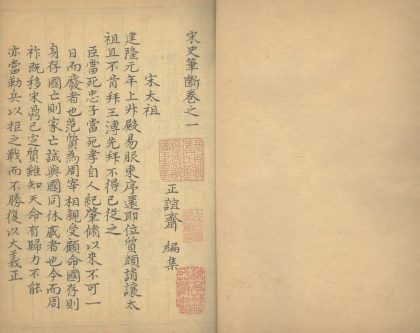 宋史筆斷卷之一
正誼齋 編集
宋太祖
建隆元年上升殿易服東序還即位質頗誚讓太
祖且不肯拜王溥先拜不得已從之
臣當死忠子當死孝自人紀肇脩以來不可一
日而廢者也范質為周宰相親受顧命國存則
身存國亡則家亡誠與國同休戚者也今而周
祚既移宋鼎已定質雖知天命有歸力不能
亦當勒兵以拒之戰而不勝復以大義正